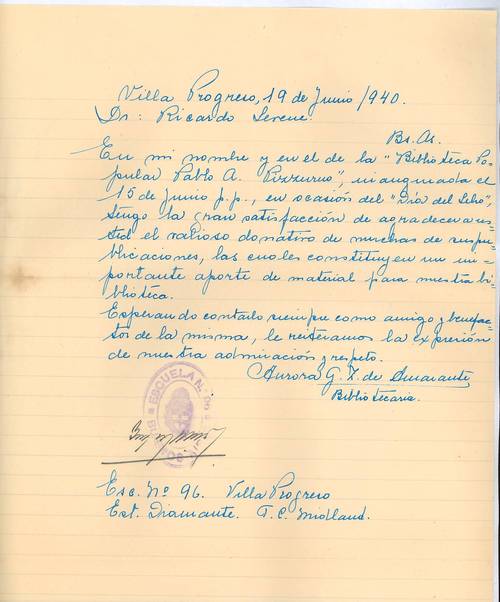 Villa Progreso, 19 de Junio 1940.
Dr: Ricardo Levene.
Bs. As.
En mi nombre y en el de la "Biblioteca Po-
pular Pablo A. Pizzurno", inaugurada el
15 de Junio p.p., en ocasión del "Día del Libro",
tengo la gran satisfacción de agradecer a us-
ted el valioso donativo de muchas de sus pu-
blicaciones, las cuales constituyen un im-
portante aporte de material para nuestra bi-
blioteca.
Esperando contarlo siempre como amigo y benefac-
tor de la misma, le reiteramos la expresión
de nuestra admiración y respeto.
Aurora G. Z. de Amarante
Bibliotecaria.
ESCUELA N.
Esc. Nº 96. Villa Progreso
Est. Diamante. F. C. Midland.